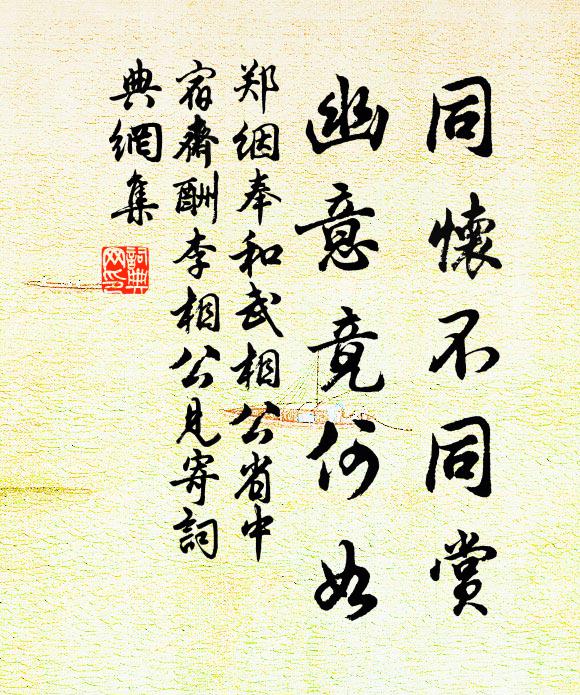 同懷不同賞
幽意竟何如
郑絪奉和武相公省中
宿齋酬李相公見寄詞
典網集
詞典
网印